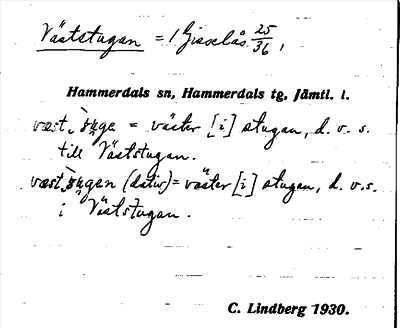 Väststugan = 1 Gisselås 25/36,
Hammerdals sn, Hammerdals tg, Jämtl. l.
= väster [i] stugan, d. v. s.
till Väststugan.
(dativ) = väster [i] stugan, d. v. s.
i Väststugan.
C. Lindberg 1930.